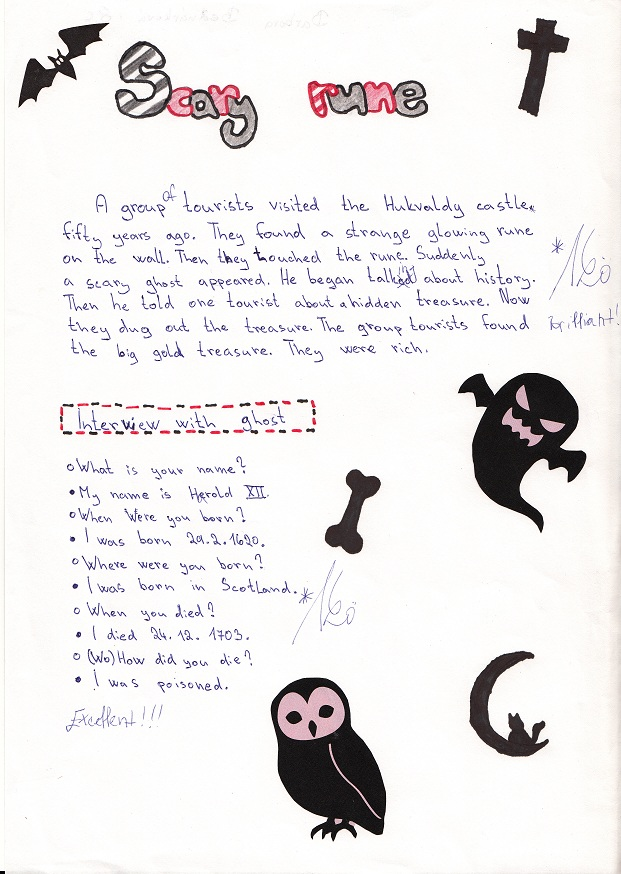 Scary rune
A group of tourists visited the Hukvaldy castle
fifty years ago. They found a strange glowing rune
on the wall. Then they touched the rune. Suddenly
a scary ghost appeared. He began talking about history.
Then he told one tourist about a hidden treasure. Now
they dug out the treasure. The group tourists found
the big gold treasure. They were rich.
Brilliant!
Interview with ghost
What is your name?
My name is Herold XII.
When were you born?
I was born 29.2.1620.
Where were you born?
I was born in Scotland.
When you died?
I died 24.12.1703.
(Wo)How did you die?
I was poisoned.
Excellent!!!